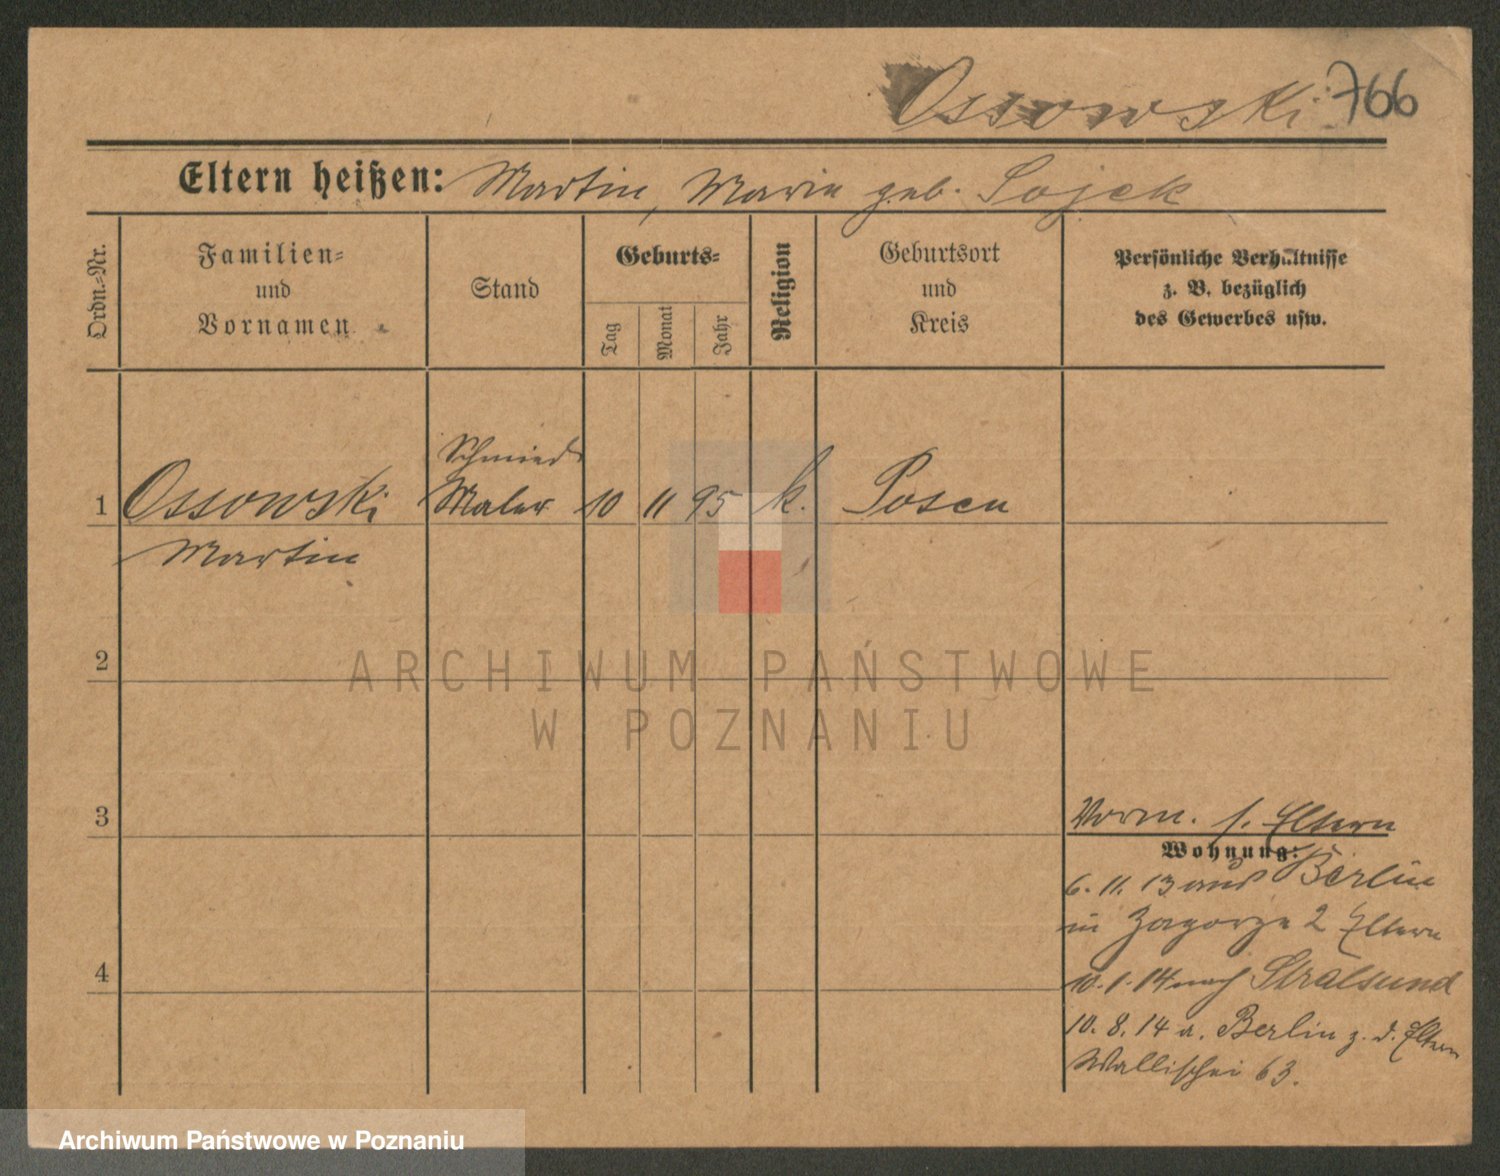 Ossowski 766
Eltern heißen: Martin, Maria geb. Sojek
Ordn.-Nr.
Familien-
und
Vornamen
Stand
Geburts-
Tag
Monat
Jahr
Religion
Geburtsort
und
Kreis
Persönliche Verhältnisse
z. B. bezüglich
des Gewerbes usw.
Schmied
1 Ossowski Maler 10 11 95 k. Posen
Martin
2
3
4
Vorm. s. Eltern
Wohnung:
6. 11. 13 aus Berlin
in Zagorze 2 Eltern
10. 1. 14 nach Stralsund
10. 8. 14 a. Berlin z. d. Eltern
Wallischei 63.
ARCHIWUM PAŃSTWOWE
W POZNANIU
Archiwum Państwowe w Poznaniu